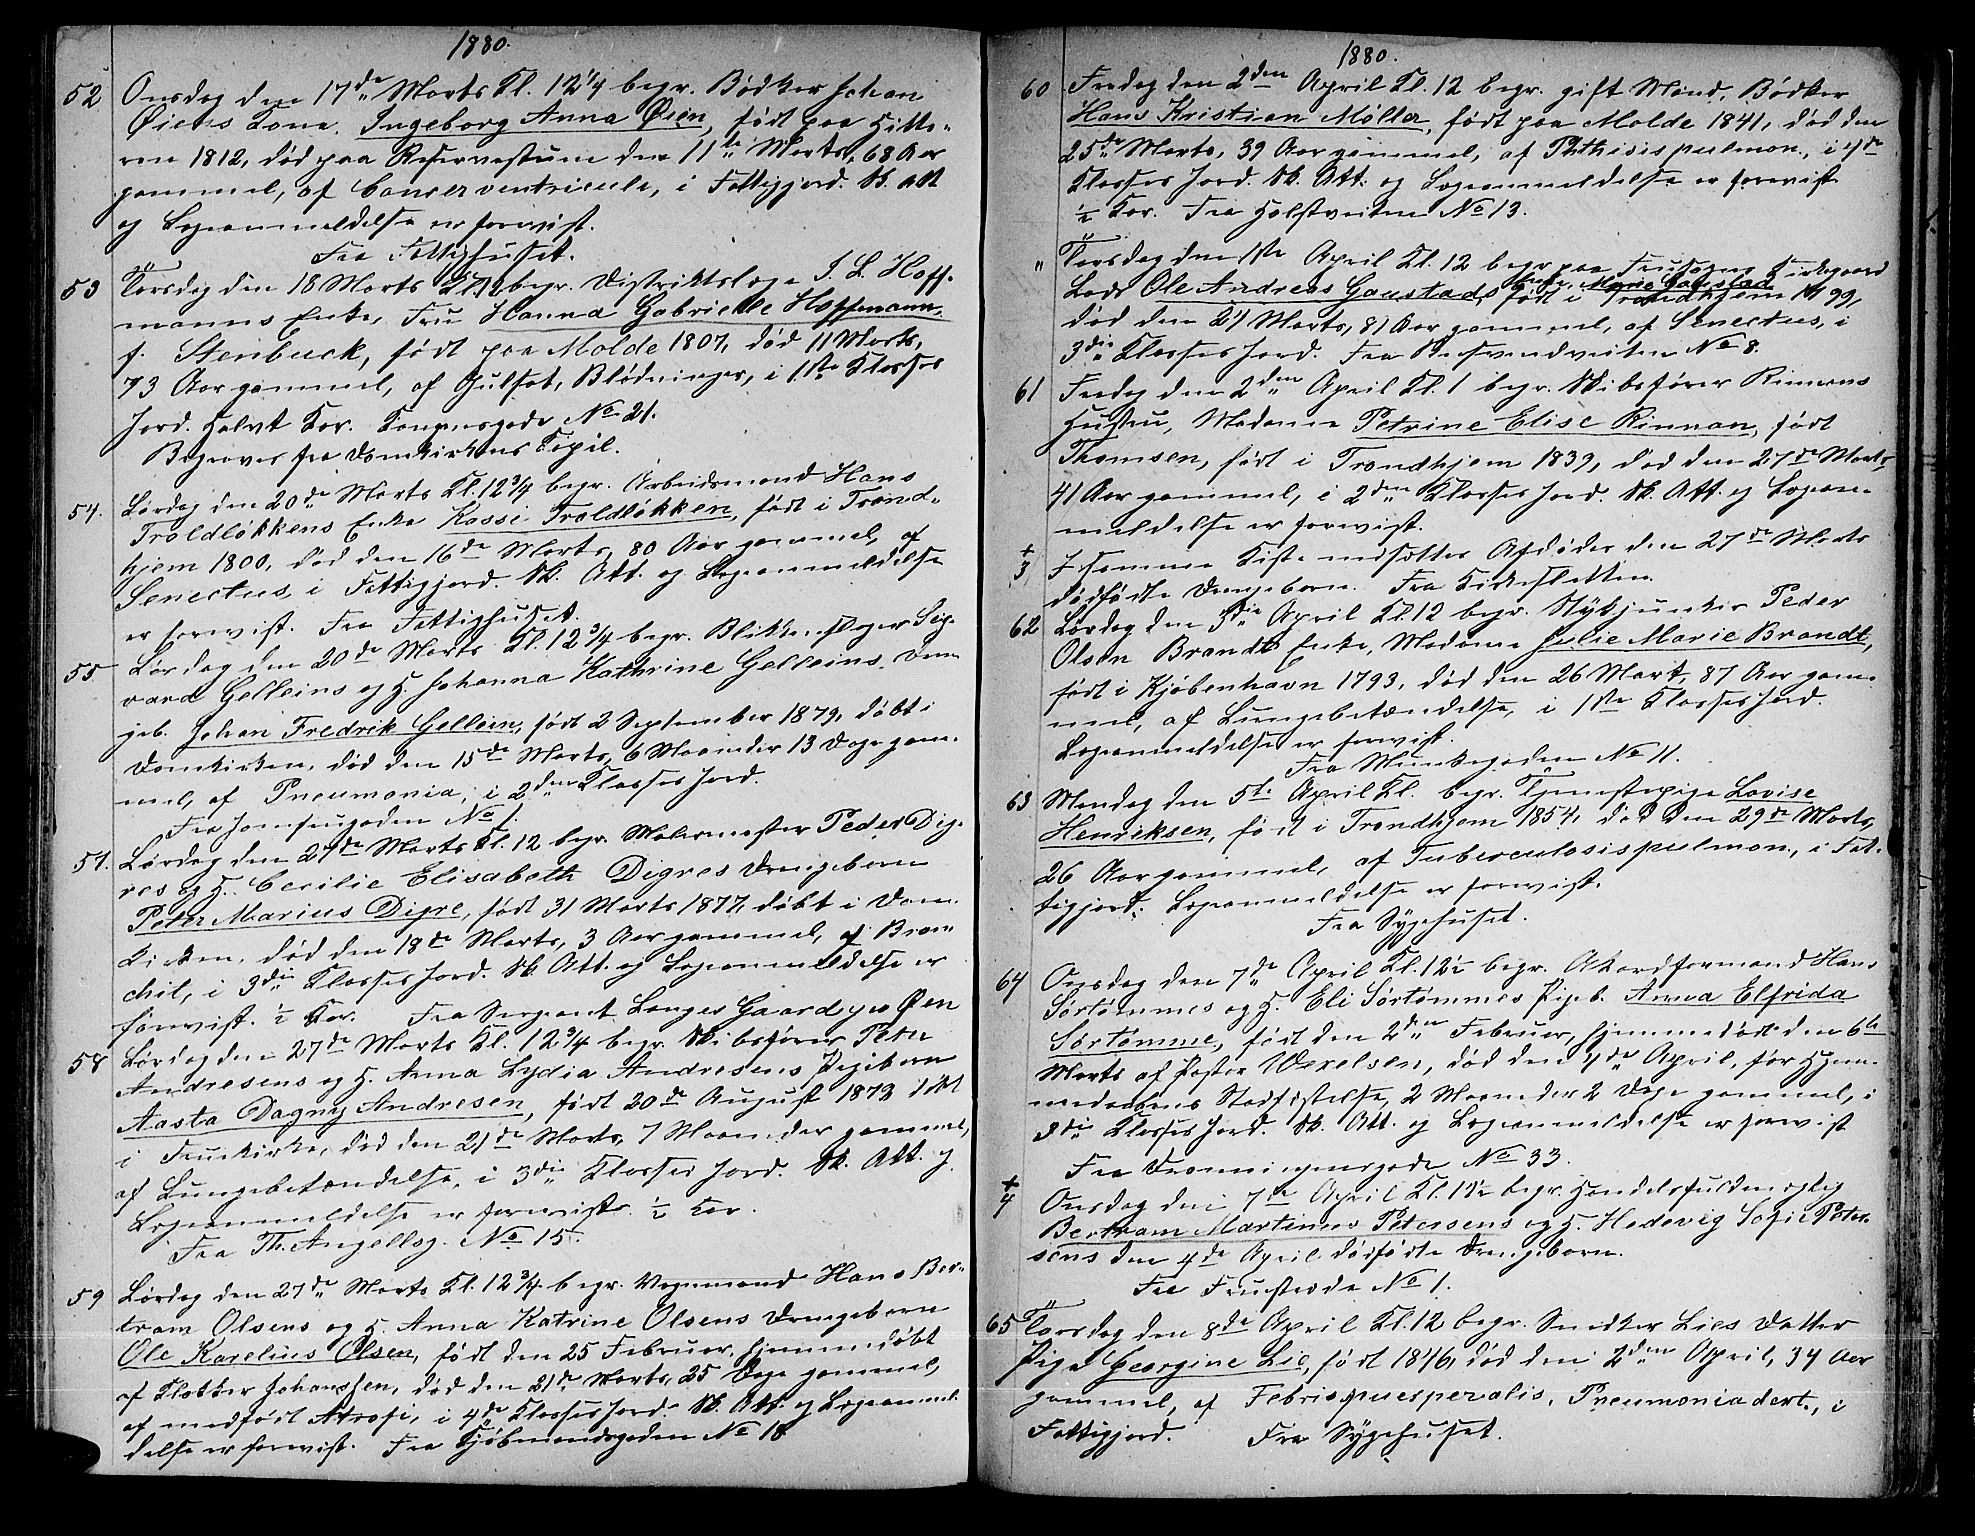 1880.
52 Onsdag den 17de Marts Kl. 12 1/4 begr. Bødker Johan
Øiens Kone, Ingeborg Anna Øien, født paa Hitte-
ren 1812, død paa Reservestuen den 11te Marts, 68 Aar
gammel, af Cancer ventriculi, i Fattigjord. Sk. Att
og Lægeanmeldelse er forevist.
Fra Fattighuset.
53 Torsdag den 18 Marts Kl. 12 begr. Distriktslæge I. L. Hoff-
manns Enke, Fru Hanna Gabrielle Hoffmann,
f. Stenbuck, født paa Molde 1807, død 11 Marts,
73 Aar gammel, af Gulsot, Blødninger, i 1ste Klasses
Jord. Halvt Kor. Kongensgade No 21.
Begraves fra Domkirkens Kapel.
54. Lørdag den 20de Marts Kl. 12 3/4 begr. Arbeidsmand Hans
Troldløkkens Enke Kassi Troldløkken, født i Trond-
hjem 1800, død den 16de Marts, 80 Aar gammel, af
Senectus, i Fattigjord. Sk. Att. og Lægeanmeldelse
er forevist. Fra Fattighuset.
55 Lørdag den 20de Marts Kl. 12 3/4 begr. Blikkenslager Sig-
vard Gelleins og H. Johanna Kathrine Gelleins Dren-
geb. Johan Fredrik Gellein, født 2 September 1879, døbt i
Domkirken, død den 15de Marts, 6 Maaneder 13 Dage gam-
mel, af Pneumonia, i 2den Klasses Jord.
Fra Jomfrugaden No 1.
57. Lørdag den 27de Marts Kl. 12 begr. Malermester Peder Dig-
res og H. Cecilie Elisabeth Digres Drengebarn
Peter Marius Digre, født 31 Marts 1877, døbt i Dom-
kirken, død den 18de Marts, 3 Aar gammel, af Bron-
chit, i 3die Klasses Jord. Sk. Att. og Lægeanmeldelse er
forevist. 1/2 Kor. Fra Sergeant Langes Gaard paa Øen
58 Lørdag den 27de Marts Kl. 12 3/4 begr. Skibsfører Peter
Andresens og H. Anna Lydia Andresens Pigebarn
Aasta Dagny Andresen, født 20de August 1879 døbt
i Fruekirke, død den 21de Marts, 7 Maaneder gammel,
af Lungebetændelse, i 3die Klasses Jord. Sk. Att. og
Lægeanmeldelse er forevist. 1/2 Kor.
Fra Th. Angellsg. No 15.
59 Lørdag den 27de Marts Kl. 12 3/4 begr. Vognmand Hans Ber-
tram Olsens og H. Anna Katrine Olsens Drengebarn
Ole Karelius Olsen, født den 25 Februar, hjemmedøbt
af Klokker Johanssen, død den 21de Marts, 25 Dage gammel,
af medfødt Atrofi, i 4de Klasses Jord. Sk. Att. og Lægeanmel-
delse er forevist. Fra Kjøbmandsgaden No 18
1880.
60 Fredag den 2den April Kl. 12 begr. gift Mand, Bødker
Hans Kristian Møller, født paa Molde 1841, død den
25de Marts, 39 Aar gammel, af Phthisis pulmon., i 4de
Klasses Jord. Sk. Att. og Lægeanmeldelse er forevist
1/2 Kor. Fra Holstveiten No 13.
" Torsdag den 1ste April Kl. 12 begr. paa Frusogns Kirkegaard
Lods Ole Andreas Gaustads Enke, Marie Gaustad født i Trondhjem 1799,
død den 27 Marts, 81 Aar gammel, af Senectus, i
3die Klasses Jord. Fra No 8.
61 Fredag den 2den April Kl. 1 begr. Skibsfører Rinnans
Hustru, Madame Petrine Elise Rinnan, født
Thomsen, født i Trondhjem 1839, død den 27de Marts
41 Aar gammel, i 2den Klasses Jord. Sk. Att. og Lægean-
meldelse er forevist.
+
3 I samme Kiste nedsættes Afdødes den 27de Marts
dødfødte Drengebarn. Fra Kirkesletten.
62 Lørdag den 3die April Kl. 12 begr. Stykjunker Peder
Olsen Brandts Enke, Madame Julie Marie Brandt,
født i Kjøbenhavn 1793, død den 26 Mart, 87 Aar gam-
mel, af Lungebetændelse, i 1ste Klasses Jord.
Lægeanmeldelse er forevist.
Fra Munkegaden No 11.
63 Mandag den 5te April Kl. begr. Tjenestepige Lovise
Henriksen, født i Trondhjem 1854, død den 29de Marts,
26 Aar gammel, af Tuberculosis pulmon., i Fat-
tigjord. Lægeanmeldelse er forevist.
Fra Sygehuset.
64 Onsdag den 7de April Kl. 12 1/2 begr. Akordformand Hans
Sørtømmes og H. Eli Sørtømmes Pigeb. Anna Elfrida
Sørtømme, født den 2den Februar, hjemmedøbt den 6te
Marts af Pastor Wexelsen, død den 4de April, før Hjem-
medaabens Stadfæstelse, 2 Maaneder 2 Dage gammel, i
3die Klasses Jord. Sk. Att. og Lægeanmeldelse er forevist
Fra Dronningensgade No 33.
+
4 Onsdag den 7de April Kl. 12 1/2 begr. Handelsfuldmægtig
Bertram Martinus Petersens og H. Hedevig Sofie Peter-
sens den 4de April dødfødte Drengebarn.
Fra Fruestræde No 1.
65 Torsdag den 8de April Kl. 12 begr. Snedker Lies Datter
Pige Georgine Lie, født 1846, død den 2den April, 34 Aar
gammel, af Febris puerperalis, Pneumonia dext., i
Fattigjord. Fra Sygehuset.